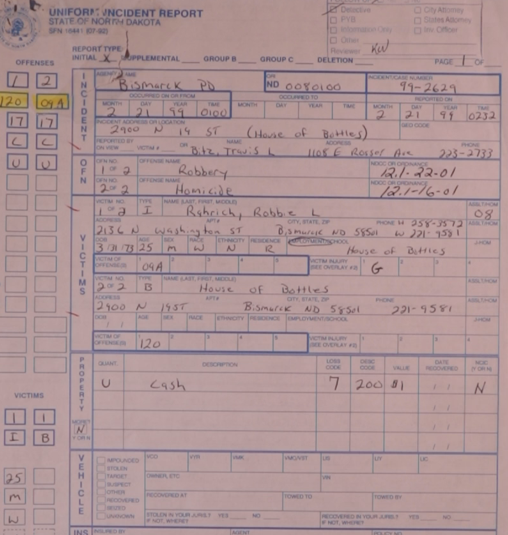 UNIFORM INCIDENT REPORT
STATE OF NORTH DAKOTA
Detective
City Attorney
PYB
States Attorney
Information Only
Other
Reviewer KW
REPORT TYPE:
INITIAL X SUPPLEMENTAL GROUP B GROUP C DELETION PAGE 1 OF
OFFENSES
1 2
120 09A
17 17
C C
U U
INCIDENT
AGENCY NAME
Bismarck PD
ORI
ND 0080100
INCIDENT/CASE NUMBER
99-2629
OCCURRED ON OR FROM
OCCURRED TO
REPORTED ON
MONTH DAY YEAR TIME MONTH DAY YEAR TIME MONTH DAY YEAR TIME
2 2 99 0100 2 21 99 0232
INCIDENT ADDRESS OR LOCATION
GEO-CODE
2900 N 14 ST (House of Bottles)
REPORTED BY
ON VIEW VICTIM # OR NAME ADDRESS PHONE
Bitz, Travis L 1108 E Rosser Ave 223-2733
OFN
OFN NO. OFFENSE NAME NDCC OR ORDINANCE
1 of 2 Robbery 12.1-22-01
OFN NO. OFFENSE NAME NDCC OR ORDINANCE
2 of 2 Homicide 12.1-16-01
VICTIMS
VICTIM NO. TYPE NAME (LAST, FIRST, MIDDLE)
1 of 2 I Rohrich, Robbe L 08
ADDRESS APT# CITY, STATE, ZIP PHONE H 258-3572
2136 N Washington ST Bismarck ND 58501 W 221-9581
DOB AGE SEX RACE ETHNICITY RESIDENCE EMPLOYMENT/SCHOOL
3 31 73 25 M W N R House of Bottles
VICTIM OF OFFENSE(S) 09A
VICTIM INJURY (SEE OVERLAY #3) G
VICTIM NO. TYPE NAME (LAST, FIRST, MIDDLE)
2 of 2 B House of Bottles
ADDRESS APT# CITY, STATE, ZIP PHONE
2900 N 14ST Bismarck ND 58501 221-9581
DOB AGE SEX RACE ETHNICITY RESIDENCE EMPLOYMENT/SCHOOL
VICTIM OF OFFENSE(S) 120
VICTIM INJURY (SEE OVERLAY #3)
PROPERTY
QUANT. DESCRIPTION LOSS CODE DESC CODE VALUE DATE RECOVERED MOC (Y OR N)
U Cash 7 200 $1 N
N
Y OR N
VICTIMS
1 1
I B
25
M
W
VEHICLE
IMPOUNDED
STOLEN
TARGET
SUSPECT
OTHER
RECOVERED
SEIZED
UNKNOWN
VCO VYR VMK VMO/VST LIS LIY LIC
OWNER, ETC. VIN
RECOVERED AT TOWED TO TOWED BY
STOLEN IN YOUR JURIS? YES NO
IF NOT, WHERE?
RECOVERED IN YOUR JURIS? YES NO
IF NOT, WHERE?
INS
INSURED BY AGENT